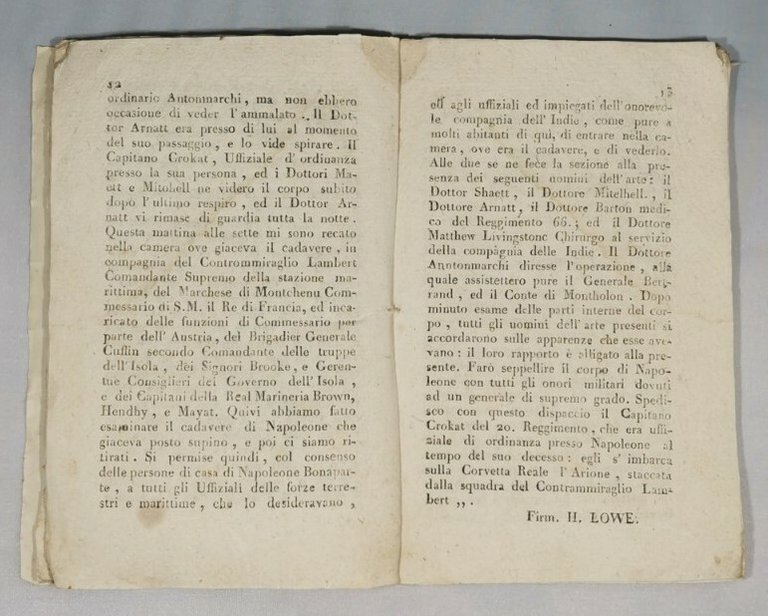 12
ordinario Antommarchi, ma non ebbero
occasione di veder l'ammalato. Il Dot-
tor Arnatt era presso di lui al momento
del suo passaggio, e lo vide spirare. Il
Capitano Crokat, Uffiziale d'ordinanza
presso la sua persona, ed i Dottori
ott e Mitchell ne videro il corpo subito
dopo l'ultimo respiro, ed il Dottor Ar-
natt vi rimase di guardia tutta la notte.
Questa mattina alle sette mi sono recato
nella camera ove giaceva il cadavere, in
compagnia del Controm­miraglio Lambert
Comandante Supremo della stazione ma-
rittima, del Marchese di Montchenu Com-
messario di S.M. il Re di Francia, ed inca-
ricato delle funzioni di Commessario per
parte dell' Austria, del Brigadier Generale
Cuffin secondo Comandante delle truppe
dell'Isola, dei Signori Brooke, e Geren-
tue Consiglieri del Governo dell'Isola,
e dei Capitani della Real Marineria Brown,
Hendby, e Mayat. Quivi abbiamo fatto
esaminare il cadavere di Napoleone che
giaceva posto supino, e poi ci siamo ri-
tirati. Si permise quindi, col consenso
delle persone di casa di Napoleone Bonapar-
te, a tutti gli Uffiziali delle forze terre-
stri e marittime, che lo desideravano,
13
ed agli uffiziali ed impiegati dell'onorevo-
le compagnia dell'Indie, come pure a
molti abitanti di qui, di entrare nella ca-
mera, ove era il cadavere, e di vederlo.
Alle due se ne fece la sezione alla pre-
senza dei seguenti uomini dell'arte: il
Dottor Shaett, il Dottore Mitelhell., il
Dottore Arnatt, il Dottore Barton medi-
co del Reggimento 66.; ed il Dottore
Matthew Livingstonc Chirurgo al servizio
della compagnia delle Indie. Il Dottore
Anntonmarchi diresse l'operazione, alla
quale assistettero pure il Generale Bert-
rand, ed il Conte di Montholon. Dopo
minuto esame delle parti interne del cor-
po, tutti gli uomini dell'arte presenti si
accordarono sulle apparenze che esse ave-
vano: il loro rapporto è alligato alla pre-
sente. Farò seppellire il corpo di Napo-
leone con tutti gli onori militari dovuti
ad un generale di supremo grado. Spedi-
sco con questo dispaccio il Capitano
Crokat del 20. Reggimento, che era uffi-
ziale di ordinanza presso Napoleone al
tempo del suo decesso: egli s'imbarca
sulla Corvetta Reale l'Arione, staccata
dalla squadra del Contrammiraglio Lam-
bert ,, .
Firm. H. LOWE.